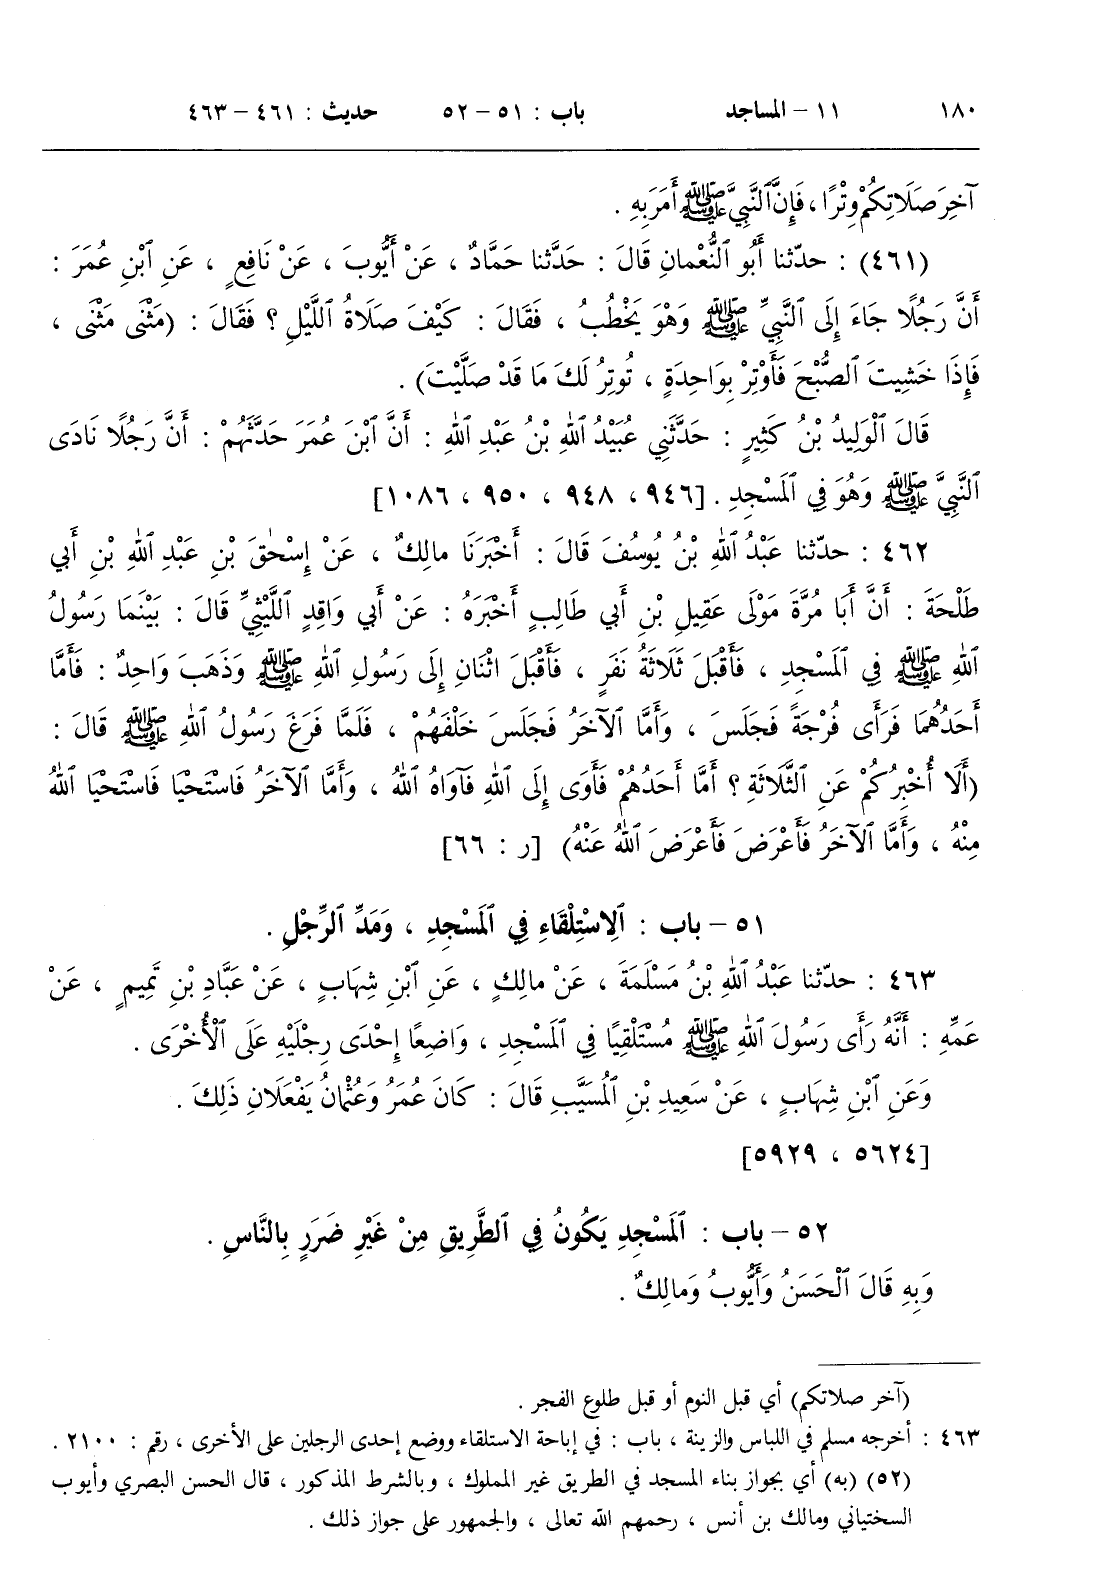 ١٨٠ ١١ – المساجد باب : ٥١ – ٥٢ حديث : ٤٦١ – ٤٦٣
آخِرَ صَلَاتِكُمْ وِتْرًا ، فَإِنَّ ٱلنَّبِيَّ ﷺ أَمَرَ بِهِ .
(٤٦١) : حدّثنا أَبُو ٱلنُّعْمانِ قَالَ : حَدَّثنا حَمَّادٌ ، عَنْ أَيُّوبَ ، عَنْ نَافِعٍ ، عَنِ ٱبْنِ عُمَرَ :
أَنَّ رَجُلًا جَاءَ إِلَى ٱلنَّبِيِّ ﷺ وَهْوَ يَخْطُبُ ، فَقَالَ : كَيْفَ صَلَاةُ اللَّيْلِ ؟ فَقَالَ : (مَثْنَى مَثْنَى ،
فَإِذَا خَشِيتَ ٱلصُّبْحَ فَأَوْتِرْ بِوَاحِدَةٍ ، تُوتِرُ لَكَ مَا قَدْ صَلَّيْتَ) .
قَالَ ٱلْوَلِيدُ بْنُ كَثِيرٍ : حَدَّثَنِي عُبَيْدُ ٱللهِ بْنُ عَبْدِ ٱللهِ : أَنَّ ٱبْنَ عُمَرَ حَدَّثَهُمْ : أَنَّ رَجُلًا نَادَى
ٱلنَّبِيَّ ﷺ وَهُوَ فِي ٱلْمَسْجِدِ . [٩٤٦ ، ٩٤٨ ، ٩٥٠ ، ١٠٨٦]
٤٦٢ : حدّثنا عَبْدُ ٱللهِ بْنُ يُوسُفَ قَالَ : أَخْبَرَنَا مالِكٌ ، عَنْ إِسْحٰقَ بْنِ عَبْدِ ٱللهِ بْنِ أَبِي
طَلْحَةَ : أَنَّ أَبَا مُرَّةَ مَوْلَى عَقِيلِ بْنِ أَبِي طَالِبٍ أَخْبَرَهُ : عَنْ أَبِي وَاقِدٍ ٱللَّيْثِيِّ قَالَ : بَيْنَمَا رَسُولُ
ٱللهِ ﷺ فِي ٱلْمَسْجِدِ ، فَأَقْبَلَ ثَلَاثَةُ نَفَرٍ ، فَأَقْبَلَ اثْنَانِ إِلَى رَسُولِ ٱللهِ ﷺ وَذَهَبَ وَاحِدٌ : فَأَمَّا
أَحَدُهُمَا فَرَأَى فُرْجَةً فَجَلَسَ ، وَأَمَّا ٱلْآخَرُ فَجَلَسَ خَلْفَهُمْ ، فَلَمَّا فَرَغَ رَسُولُ ٱللهِ ﷺ قَالَ :
(أَلَا أُخْبِرُكُمْ عَنِ ٱلثَّلَاثَةِ ؟ أَمَّا أَحَدُهُمْ فَأَوَى إِلَى ٱللهِ فَآوَاهُ ٱللهُ ، وَأَمَّا ٱلْآخَرُ فَاسْتَحْيَا فَاسْتَحْيَا ٱللهُ
مِنْهُ ، وَأَمَّا ٱلْآخَرُ فَأَعْرَضَ فَأَعْرَضَ ٱللهُ عَنْهُ) [ر : ٦٦]
٥١ – باب : ٱلِاسْتِلْقَاءِ فِي ٱلْمَسْجِدِ ، وَمَدِّ ٱلرِّجْلِ .
٤٦٣ : حدّثنا عَبْدُ ٱللهِ بْنُ مَسْلَمَةَ ، عَنْ مالِكٍ ، عَنِ ٱبْنِ شِهَابٍ ، عَنْ عَبَّادِ بْنِ تَمِيمٍ ، عَنْ
عَمِّهِ : أَنَّهُ رَأَى رَسُولَ ٱللهِ ﷺ مُسْتَلْقِيًا فِي ٱلْمَسْجِدِ ، وَاضِعًا إِحْدَى رِجْلَيْهِ عَلَى ٱلْأُخْرَى .
وَعَنِ ٱبْنِ شِهَابٍ ، عَنْ سَعِيدِ بْنِ ٱلْمُسَيَّبِ قَالَ : كَانَ عُمَرُ وَعُثْمانُ يَفْعَلَانِ ذَلِكَ .
[٥٦٢٤ ، ٥٩٢٩]
٥٢ – باب : ٱلْمَسْجِدِ يَكُونُ فِي ٱلطَّرِيقِ مِنْ غَيْرِ ضَرَرٍ بِالنَّاسِ .
وَبِهِ قَالَ ٱلْحَسَنُ وَأَيُّوبُ وَمالِكٌ .
(آخر صلاتكم) أي قبل النوم أو قبل طلوع الفجر .
٤٦٣ : أخرجه مسلم في اللباس والزينة ، باب : في إباحة الاستلقاء ووضع إحدى الرجلين على الأخرى ، رقم : ٢١٠٠ .
(٥٢) (به) أي بجواز بناء المسجد في الطريق غير المملوك ، وبالشرط المذكور ، قال الحسن البصري وأيوب
السختياني ومالك بن أنس ، رحمهم الله تعالى ، والجمهور على جواز ذلك .